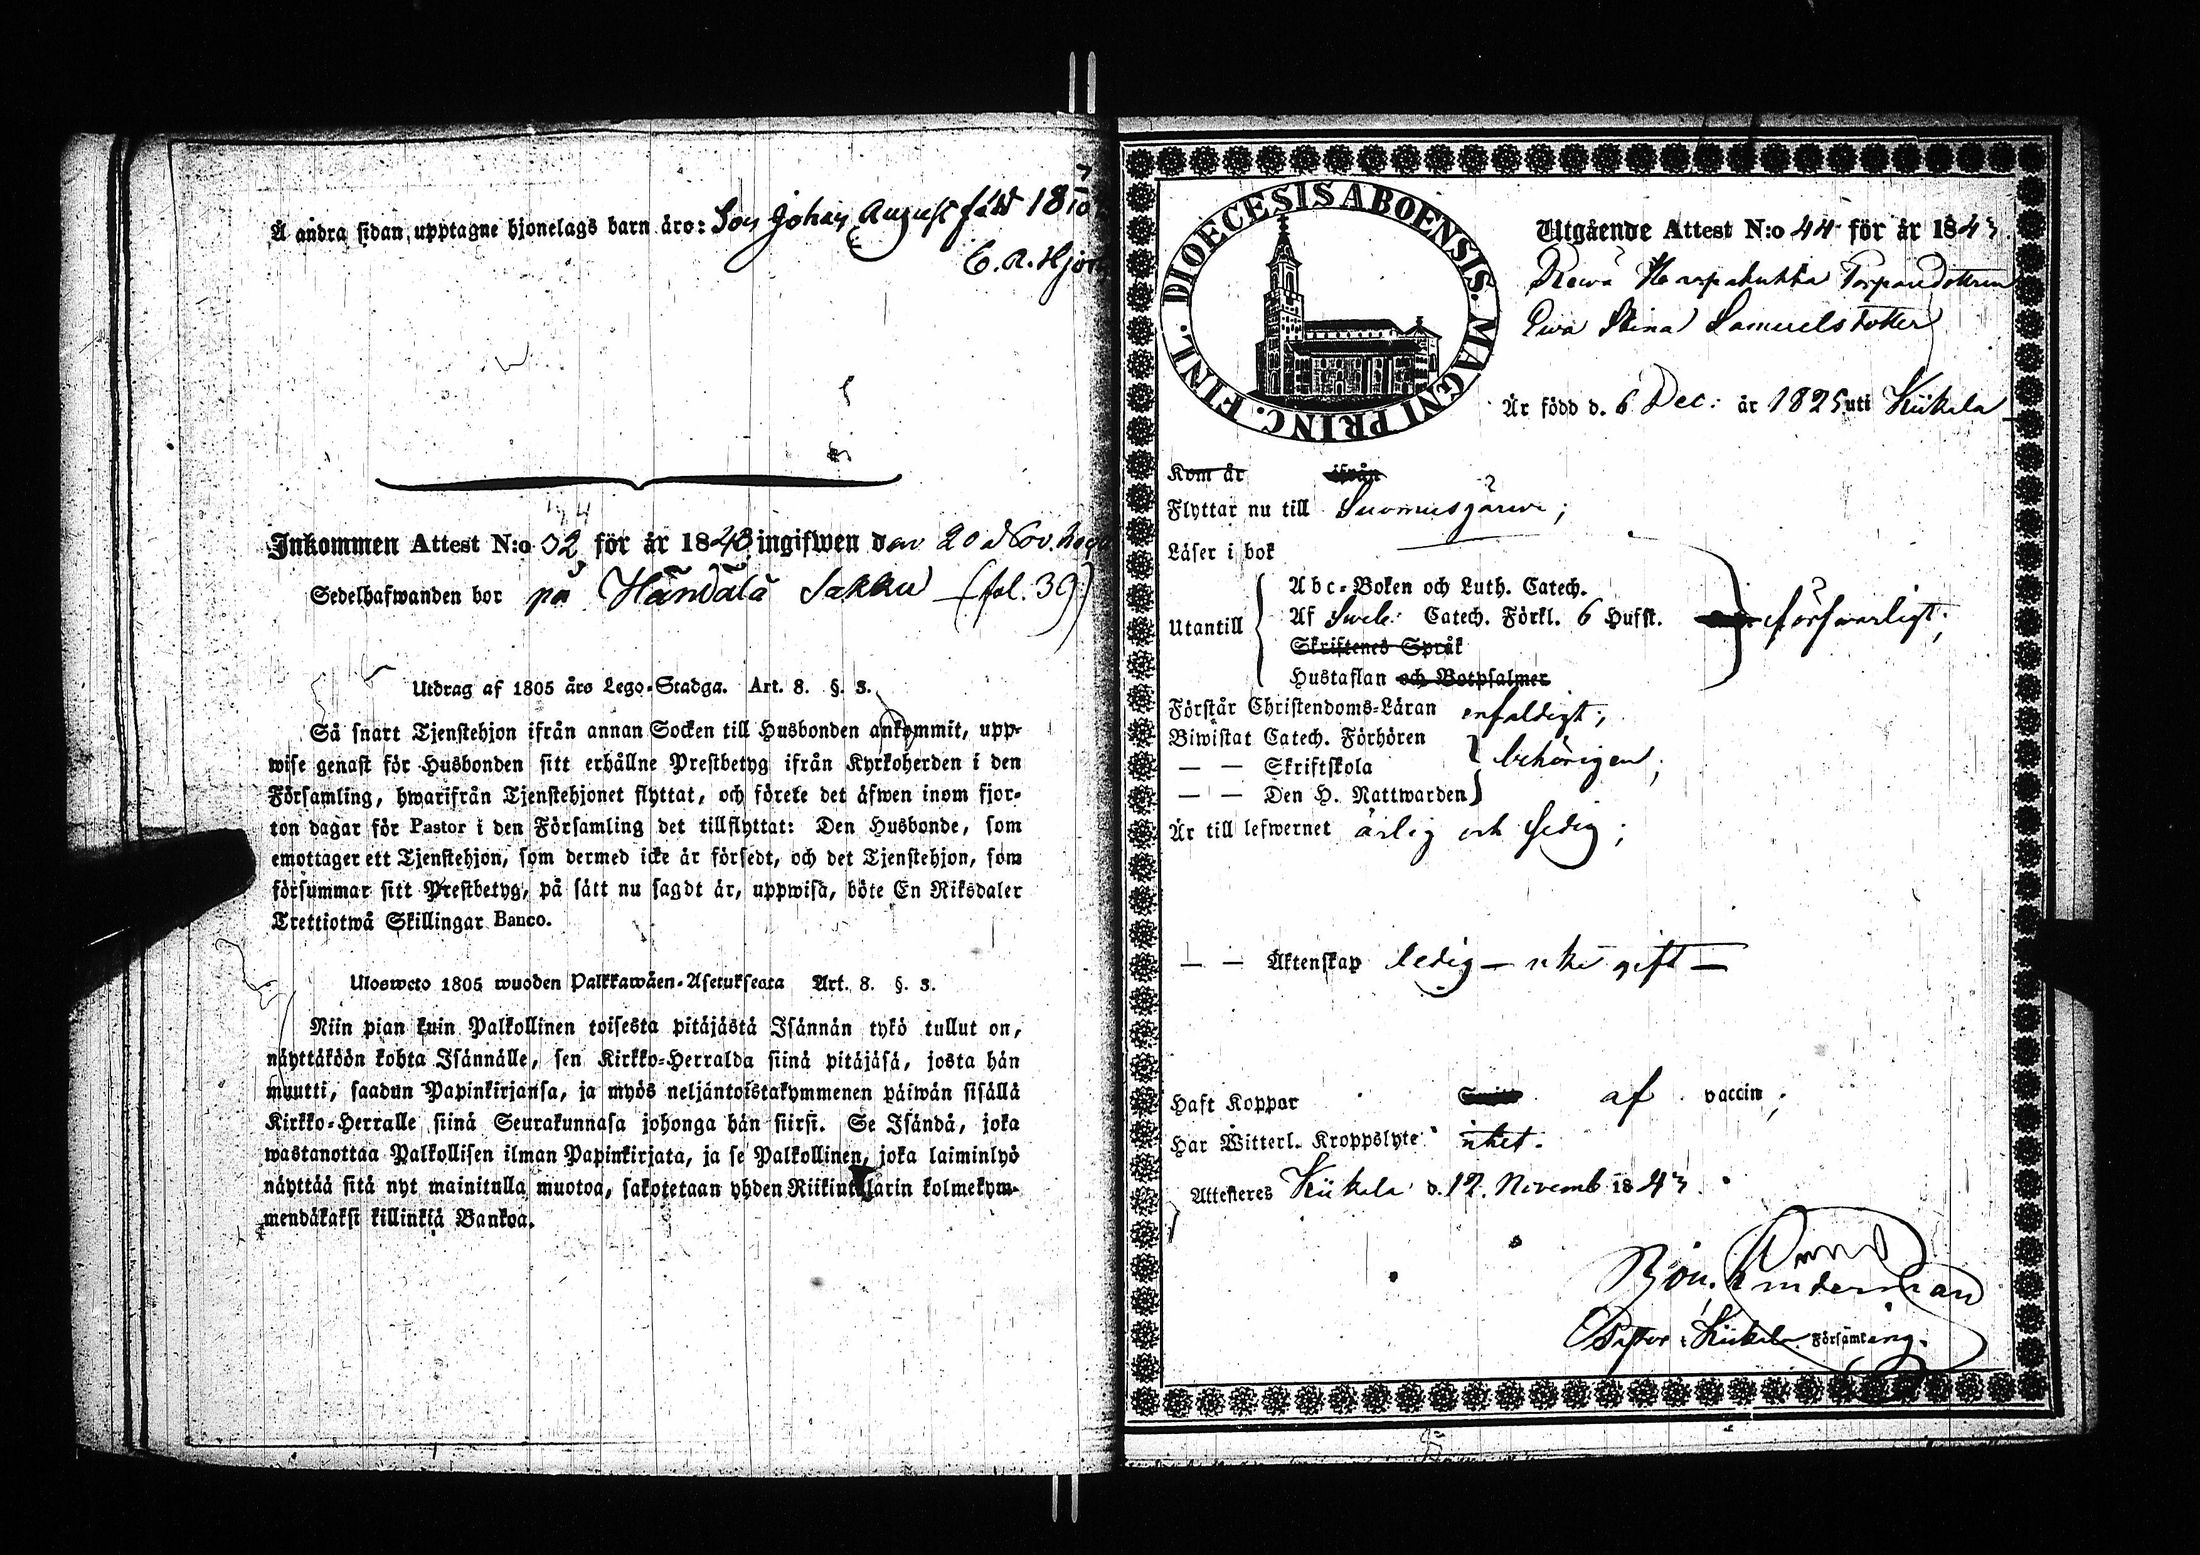 Å andra sidan upptagne hjonelags barn äro: Son Johan August född 18
C. R. Hjor
Inkommen Attest N:o 32 för år 1843 ingifwen den 20 Nov.
Sedelhafwanden bor på Händälä Sakku (fol. 39)
Utdrag af 1805 års Lego-Stadga. Art. 8. §. 3.
Så snart Tjenstehjon ifrån annan Socken till Husbonden ankommit, upp-
wise genast för Husbonden sitt erhållne Prestbetyg ifrån Kyrkoherden i den
Församling, hwarifrån Tjenstehjonet flyttat, och förete det äfwen inom fjor-
ton dagar för Pastor i den Församling det tillflyttat: Den Husbonde, som
emottager ett Tjenstehjon, som dermed icke är försedt, och det Tjenstehjon, som
försummar sitt Prestbetyg, på sätt nu sagdt är, uppwisa, böte En Riksdaler
Trettiotwå Skillingar Banco.
Ulosweto 1805 wuoden Palkkawäen-Asetuksesta Art. 8. §. 3.
Niin pian kuin Palkollinen toisesta pitäjästä Isännän tykö tullut on,
näyttäköön kohta Isännälle, sen Kirkko-Herralda siinä pitäjäsä, josta hän
muutti, saadun Papinkirjansa, ja myös neljäntoistakymmenen päiwän sisällä
Kirkko-Herralle siinä Seurakunnasa johonga hän siirsi. Se Isändä, joka
wastanottaa Palkollisen ilman Papinkirjata, ja se Palkollinen, joka laiminlyö
näyttää sitä nyt mainitulla muotoa, sakotetaan yhden Riikintalarin kolmekym-
mendäkaksi killinkiä Bankoa.
DIOECESIS ABOENSIS. MAGNI PRINC. FINL.
Utgående Attest N:o 44 för år 1843.
Rewä Harpakukka Torparedottren
Ewa Stina Samuelsdotter
Är född d. 6 Dec: år 1825 uti Kiikala
Kom år ifrån
Flyttar nu till Suomusjärwi;
Läser i bok
Utantill
Abc-Boken och Luth. Catech.
Af Sweb. Catech. Förkl. 6 Hufst. förswarligt;
Skriftenes Språk
Hustaflan och Botpsalmer
Förstår Christendoms-Läran enfaldigt;
Biwistat Catech. Förhören
— — Skriftskola behörigen;
— — Den H. Nattwarden
Är till lefwernet ärlig och sedig;
— — Äktenskap ledig — icke gift —
Haft Koppor af vaccin;
Har Witterl. Kroppslyte intet.
Attesteres Kiikala d. 12. Novemb 1843.
Linderman
Pastor i Kiikala Församling.